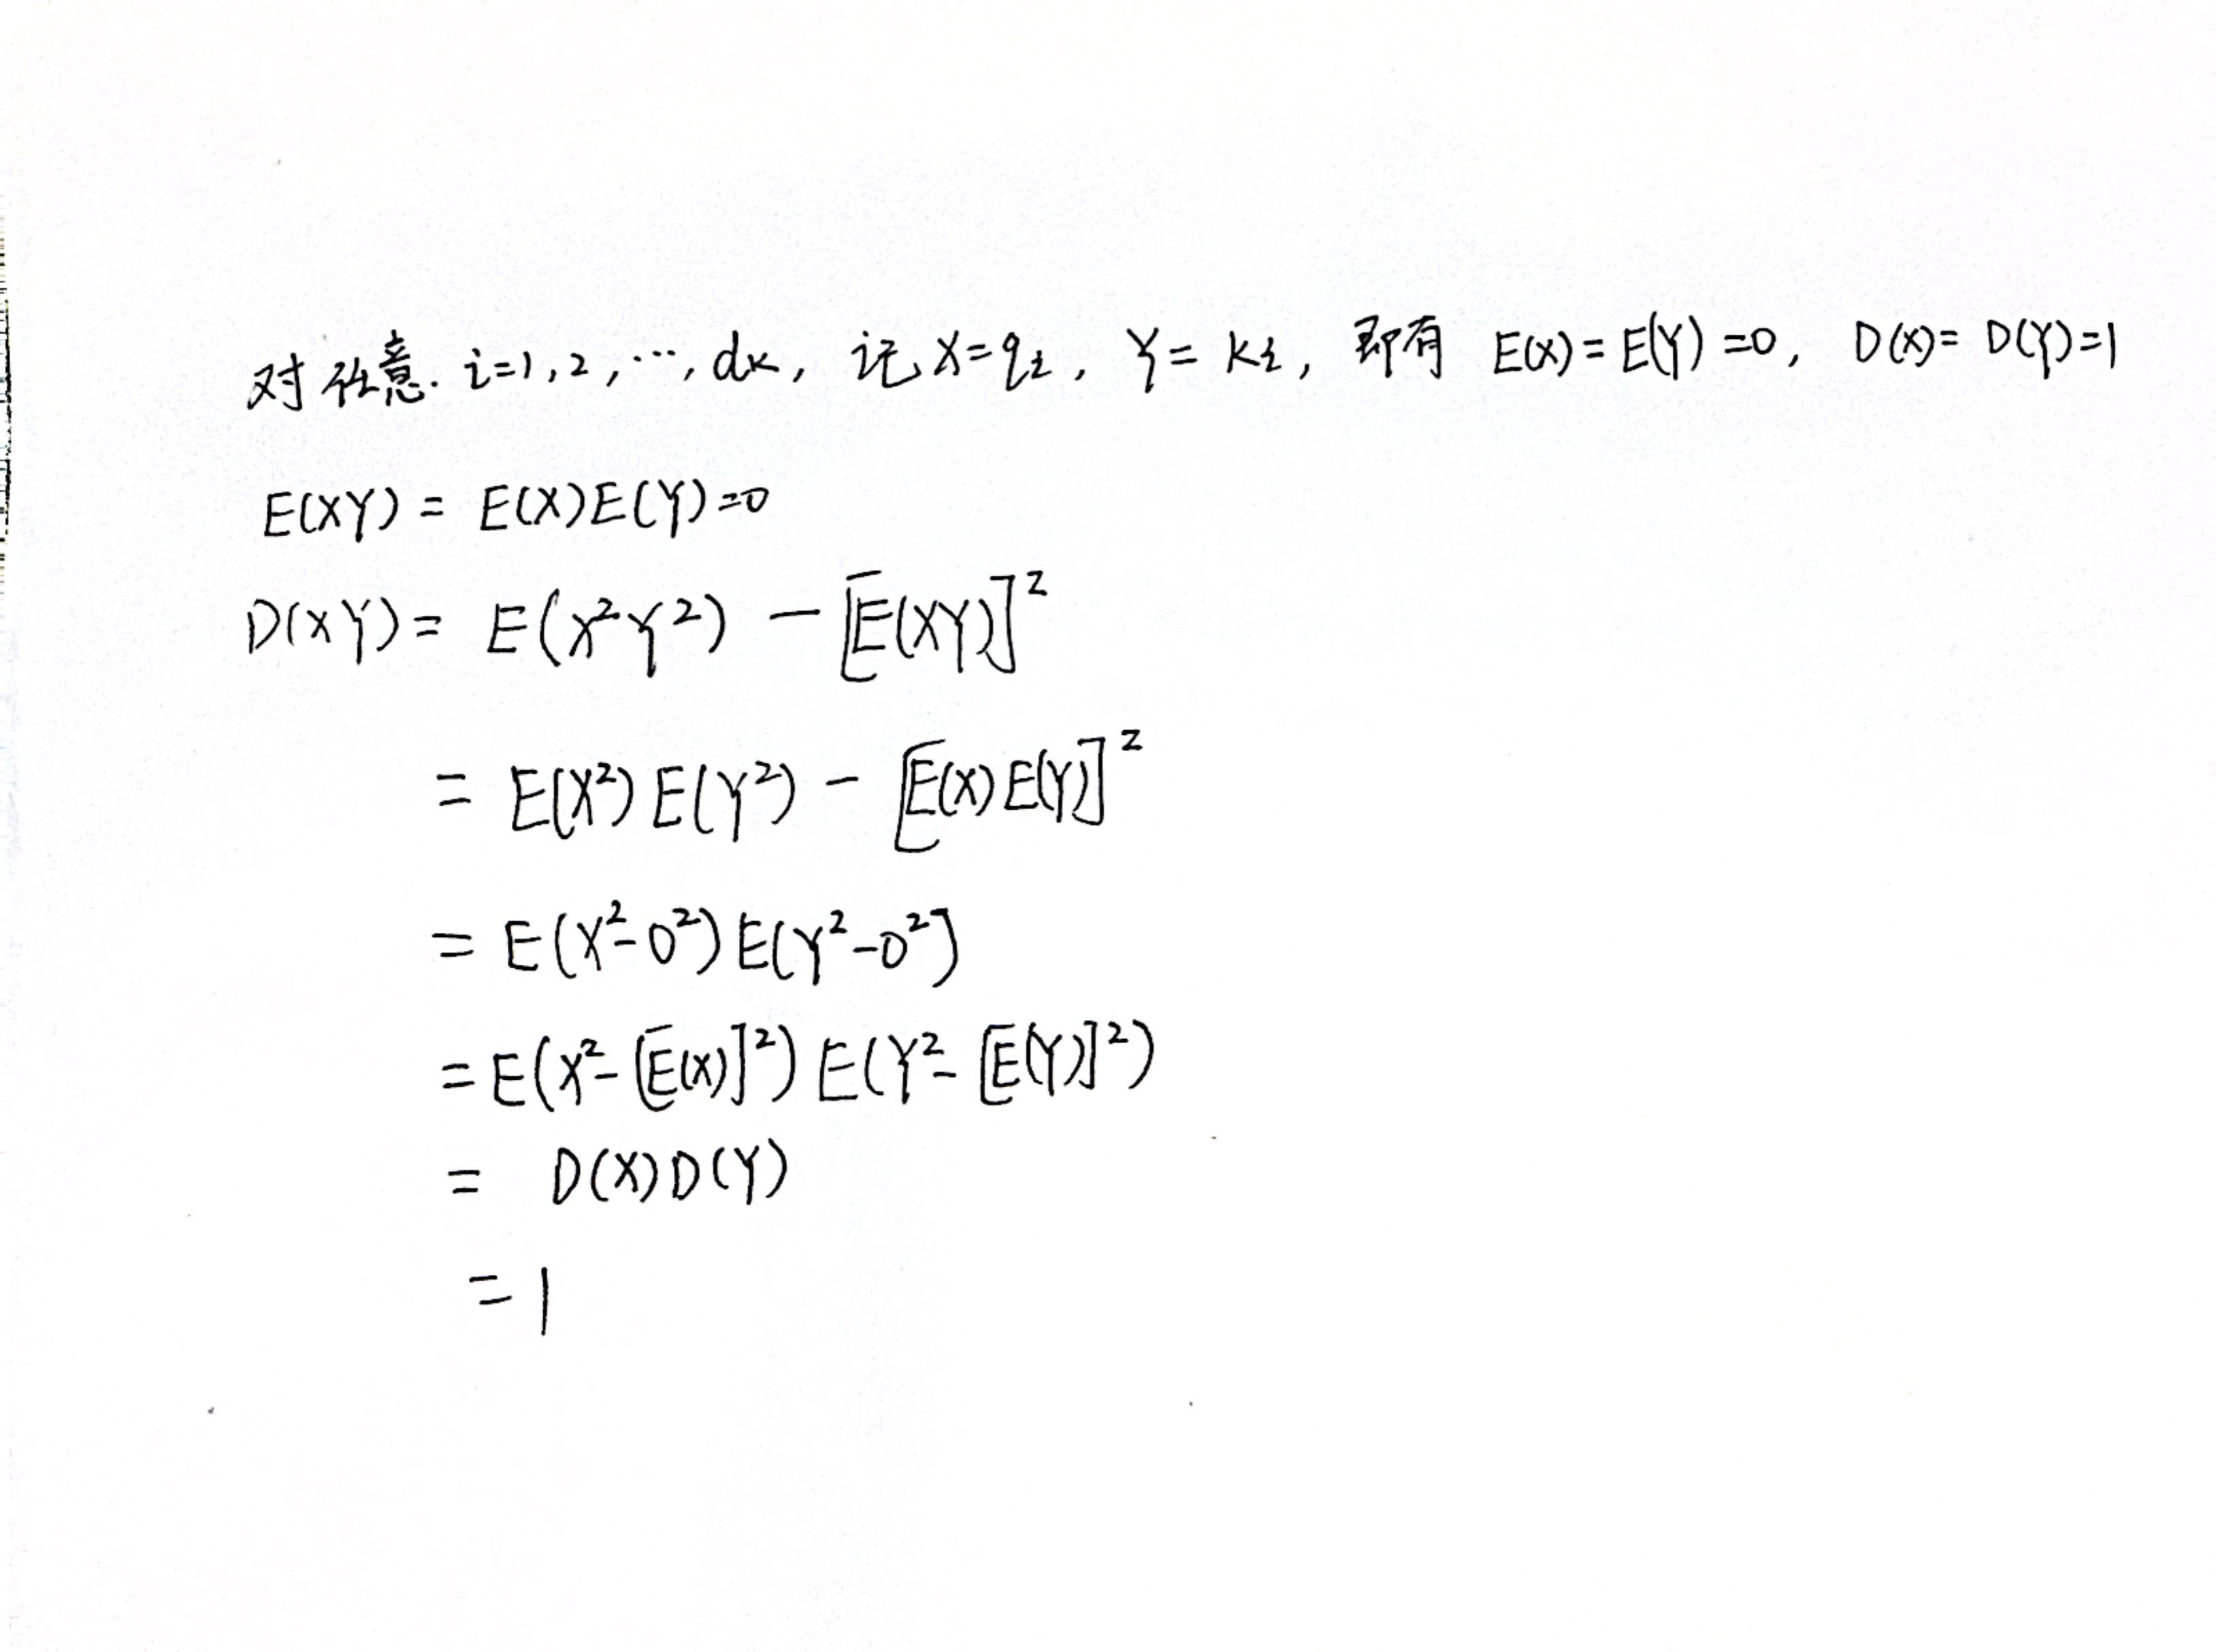 对任意. i=1,2,…,dₖ, 记X=qᵢ, Y=kᵢ, 即有 E(X)=E(Y)=0, D(X)=D(Y)=1
E(XY)=E(X)E(Y)=0
D(XY)=E(X²Y²)-[E(XY)]²
=E(X²)E(Y²)-[E(X)E(Y)]²
=E(X²-0²)E(Y²-0²)
=E(X²-[E(X)]²)E(Y²-[E(Y)]²)
=D(X)D(Y)
=1